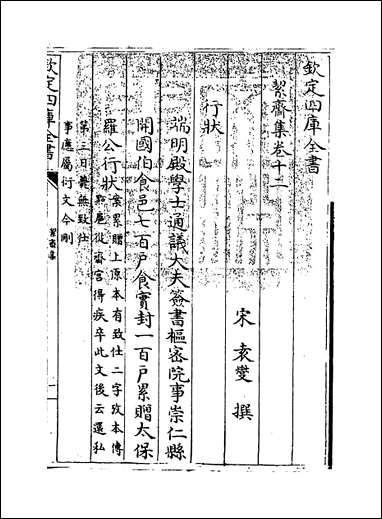 欽定四庫全書
絜齋集卷十二
宋 袁燮 撰
行狀
端明殿學士通議大夫簽書樞密院事崇仁縣
開國伯食邑七百戶食實封一百戶累贈太保
羅公行狀案累贈上原本有致仕二字攷本傳
點扈從齋宮得疾卒此文後云還私
第三日薨無致仕
事應屬衍文今刪
欽定四庫全書
絜齋集
一